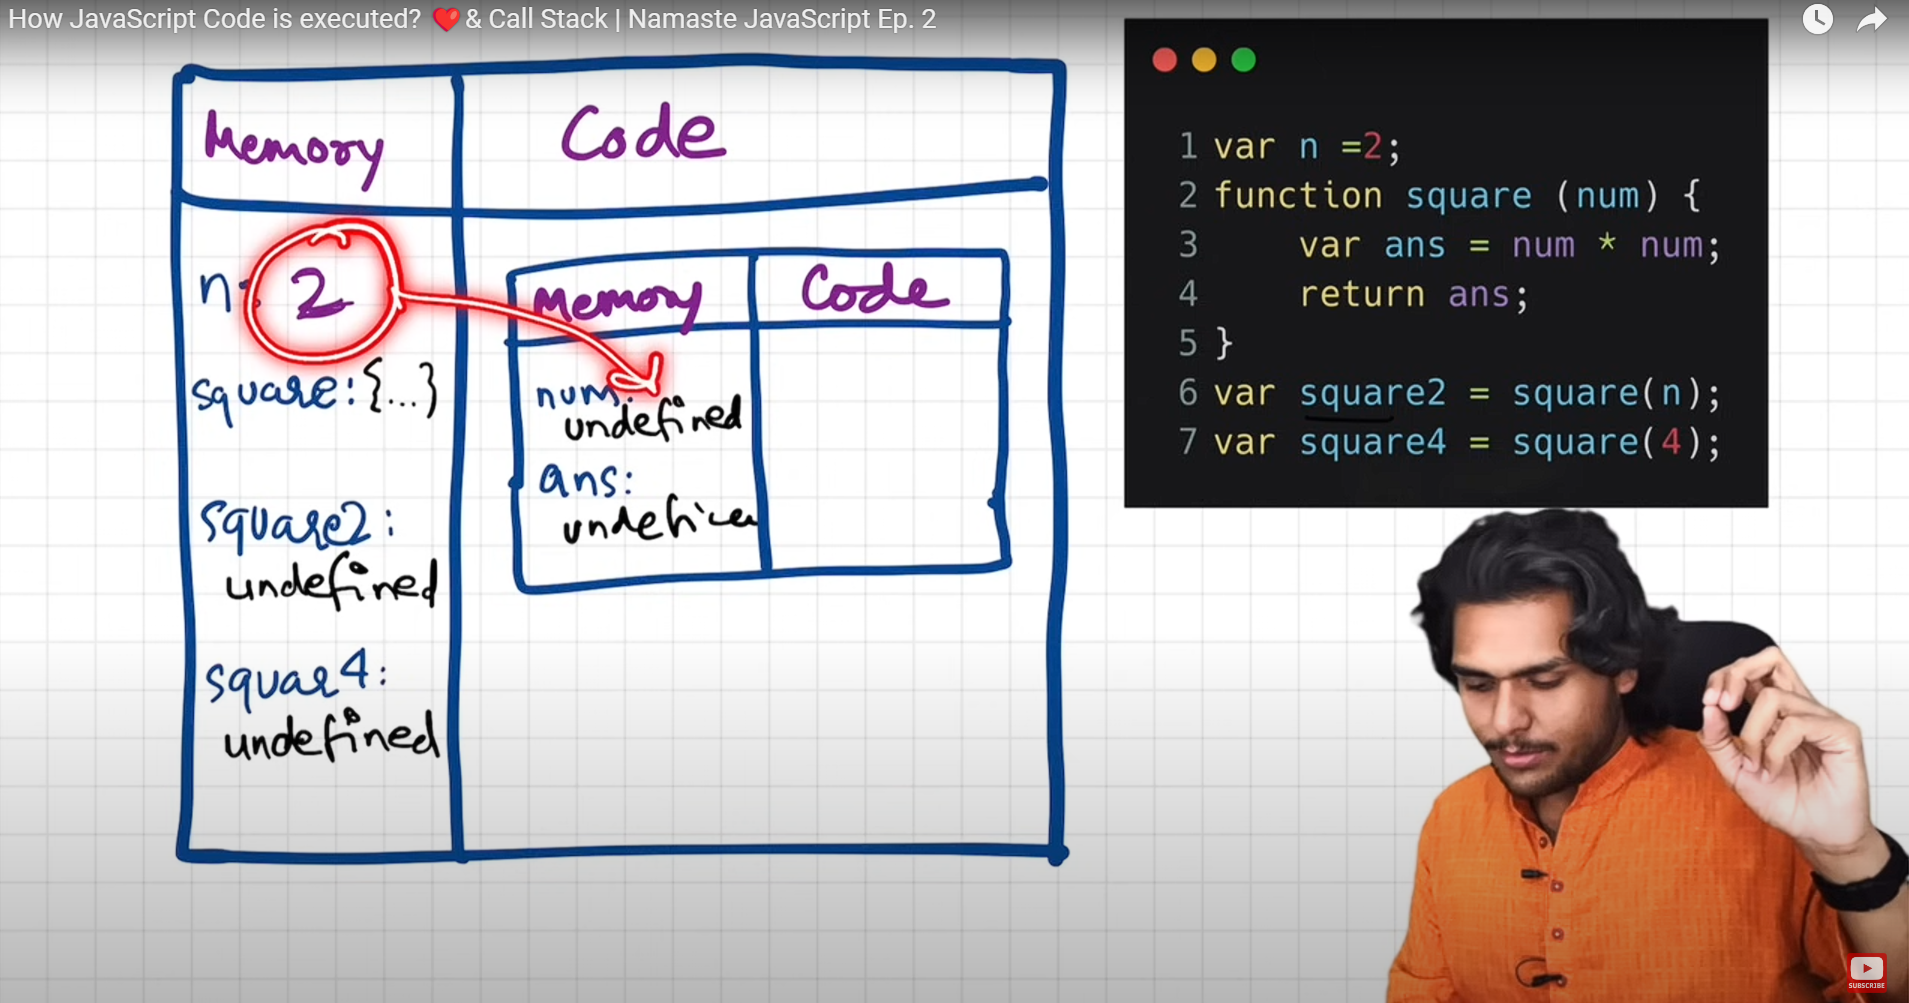 How JavaScript Code is executed? ❤️ & Call Stack | Namaste JavaScript Ep. 2
Memory Code
n: 2
square: {...}
square2:
undefined
squar4:
undefined
Memory Code
num:
undefined
ans:
1 var n =2;
2 function square (num) {
3 var ans = num * num;
4 return ans;
5 }
6 var square2 = square(n);
7 var square4 = square(4);
SUBSCRIBE